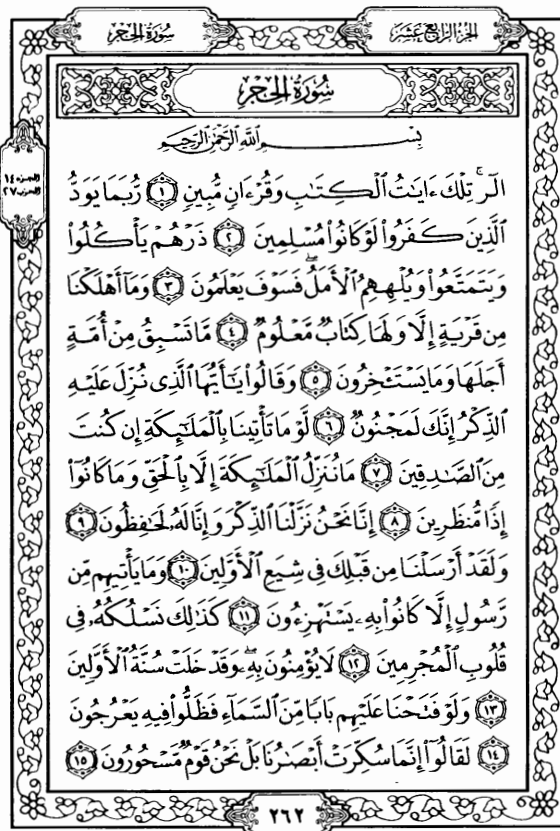 سُورَةُ الحِجْر
الجُزْءُ الرَّابِعَ عَشَرَ
سُورَةُ الحِجْرِ
الجزء ١٤
الحزب ٢٧
بِسْمِ اللَّهِ الرَّحْمَٰنِ الرَّحِيمِ
الٓرۚ تِلْكَ ءَايَٰتُ ٱلْكِتَٰبِ وَقُرْءَانٍ مُّبِينٍ ۝١ رُّبَمَا يَوَدُّ
ٱلَّذِينَ كَفَرُوا۟ لَوْ كَانُوا۟ مُسْلِمِينَ ۝٢ ذَرْهُمْ يَأْكُلُوا۟
وَيَتَمَتَّعُوا۟ وَيُلْهِهِمُ ٱلْأَمَلُۖ فَسَوْفَ يَعْلَمُونَ ۝٣ وَمَآ أَهْلَكْنَا
مِن قَرْيَةٍ إِلَّا وَلَهَا كِتَابٌ مَّعْلُومٌ ۝٤ مَّا تَسْبِقُ مِنْ أُمَّةٍ
أَجَلَهَا وَمَا يَسْتَـْٔخِرُونَ ۝٥ وَقَالُوا۟ يَٰٓأَيُّهَا ٱلَّذِى نُزِّلَ عَلَيْهِ
ٱلذِّكْرُ إِنَّكَ لَمَجْنُونٌ ۝٦ لَّوْ مَا تَأْتِينَا بِٱلْمَلَٰٓئِكَةِ إِن كُنتَ
مِنَ ٱلصَّٰدِقِينَ ۝٧ مَا نُنَزِّلُ ٱلْمَلَٰٓئِكَةَ إِلَّا بِٱلْحَقِّ وَمَا كَانُوٓا۟
إِذًا مُّنظَرِينَ ۝٨ إِنَّا نَحْنُ نَزَّلْنَا ٱلذِّكْرَ وَإِنَّا لَهُۥ لَحَٰفِظُونَ ۝٩
وَلَقَدْ أَرْسَلْنَا مِن قَبْلِكَ فِى شِيَعِ ٱلْأَوَّلِينَ ۝١٠ وَمَا يَأْتِيهِم مِّن
رَّسُولٍ إِلَّا كَانُوا۟ بِهِۦ يَسْتَهْزِءُونَ ۝١١ كَذَٰلِكَ نَسْلُكُهُۥ فِى
قُلُوبِ ٱلْمُجْرِمِينَ ۝١٢ لَا يُؤْمِنُونَ بِهِۦۖ وَقَدْ خَلَتْ سُنَّةُ ٱلْأَوَّلِينَ
۝١٣ وَلَوْ فَتَحْنَا عَلَيْهِم بَابًا مِّنَ ٱلسَّمَآءِ فَظَلُّوا۟ فِيهِ يَعْرُجُونَ
۝١٤ لَقَالُوٓا۟ إِنَّمَا سُكِّرَتْ أَبْصَٰرُنَا بَلْ نَحْنُ قَوْمٌ مَّسْحُورُونَ ۝١٥
٢٦٢